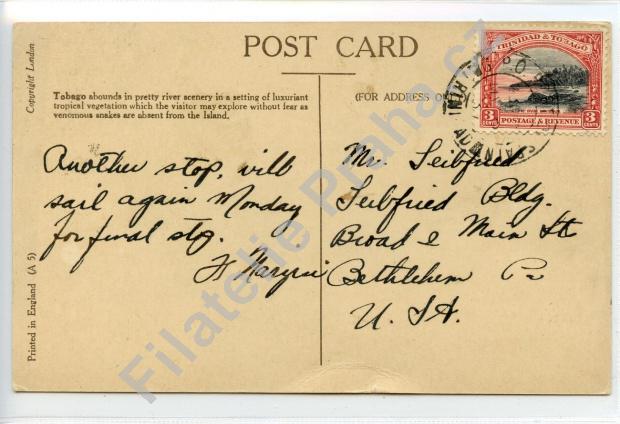 POST CARD
Copyright London
Tobago abounds in pretty river scenery in a setting of luxuriant
tropical vegetation which the visitor may explore without fear as
venomous snakes are absent from the Island.
Another stop, will
sail again Monday
for final stop.
Printed in England (A 5)
(FOR ADDRESS O
TRINIDAD & TOBAGO
3 CENTS
POSTAGE & REVENUE
3 CENTS
Mr. Seibfried
Seibfried Bldg.
Broad & Main St
Bethlehem Pa
U.S.A.
Filatelie Praha.cz